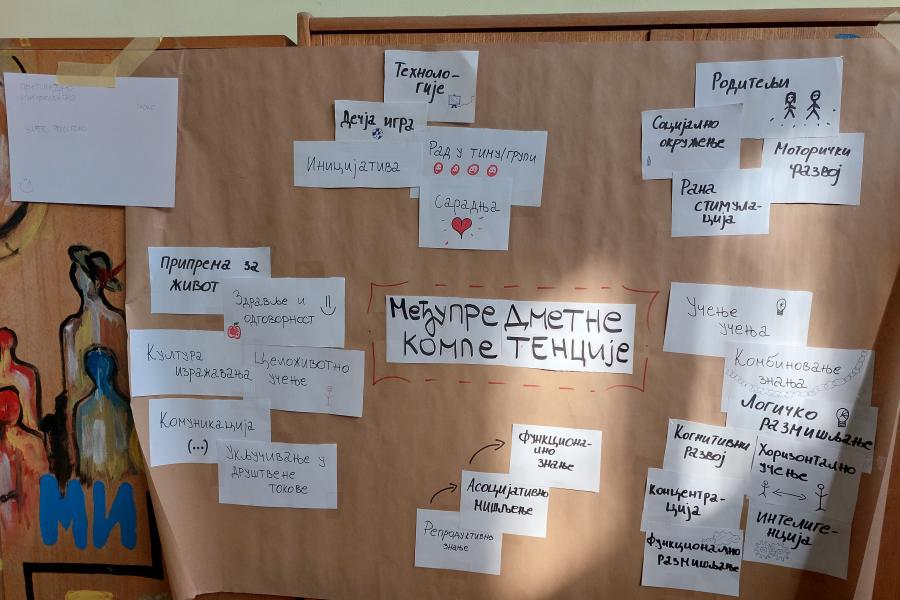 Техноло-
гије
Дечја игра
Иницијатива
Рад у тиму/групи
Сарадња
Родитељи
Социјално
окружење
Моторички
развој
Рана
стимула-
ција
Припрема за
живот
Здравље и
одговорност
Култура
изражавања
Целоживотно
учење
Комуникација
(...)
Укључивање у
друштвене
токове
Међупредметне
компетенције
Функциона-
лно
знање
Асоцијативно
мишљење
Репродуктивно
знање
Учење
учења
Комбиновање
знања
Логичко
размишљање
Когнитивни
развој
Хоризонтално
учење
Концентра-
ција
Интелиге-
нција
Функционално
размишљање
МИ